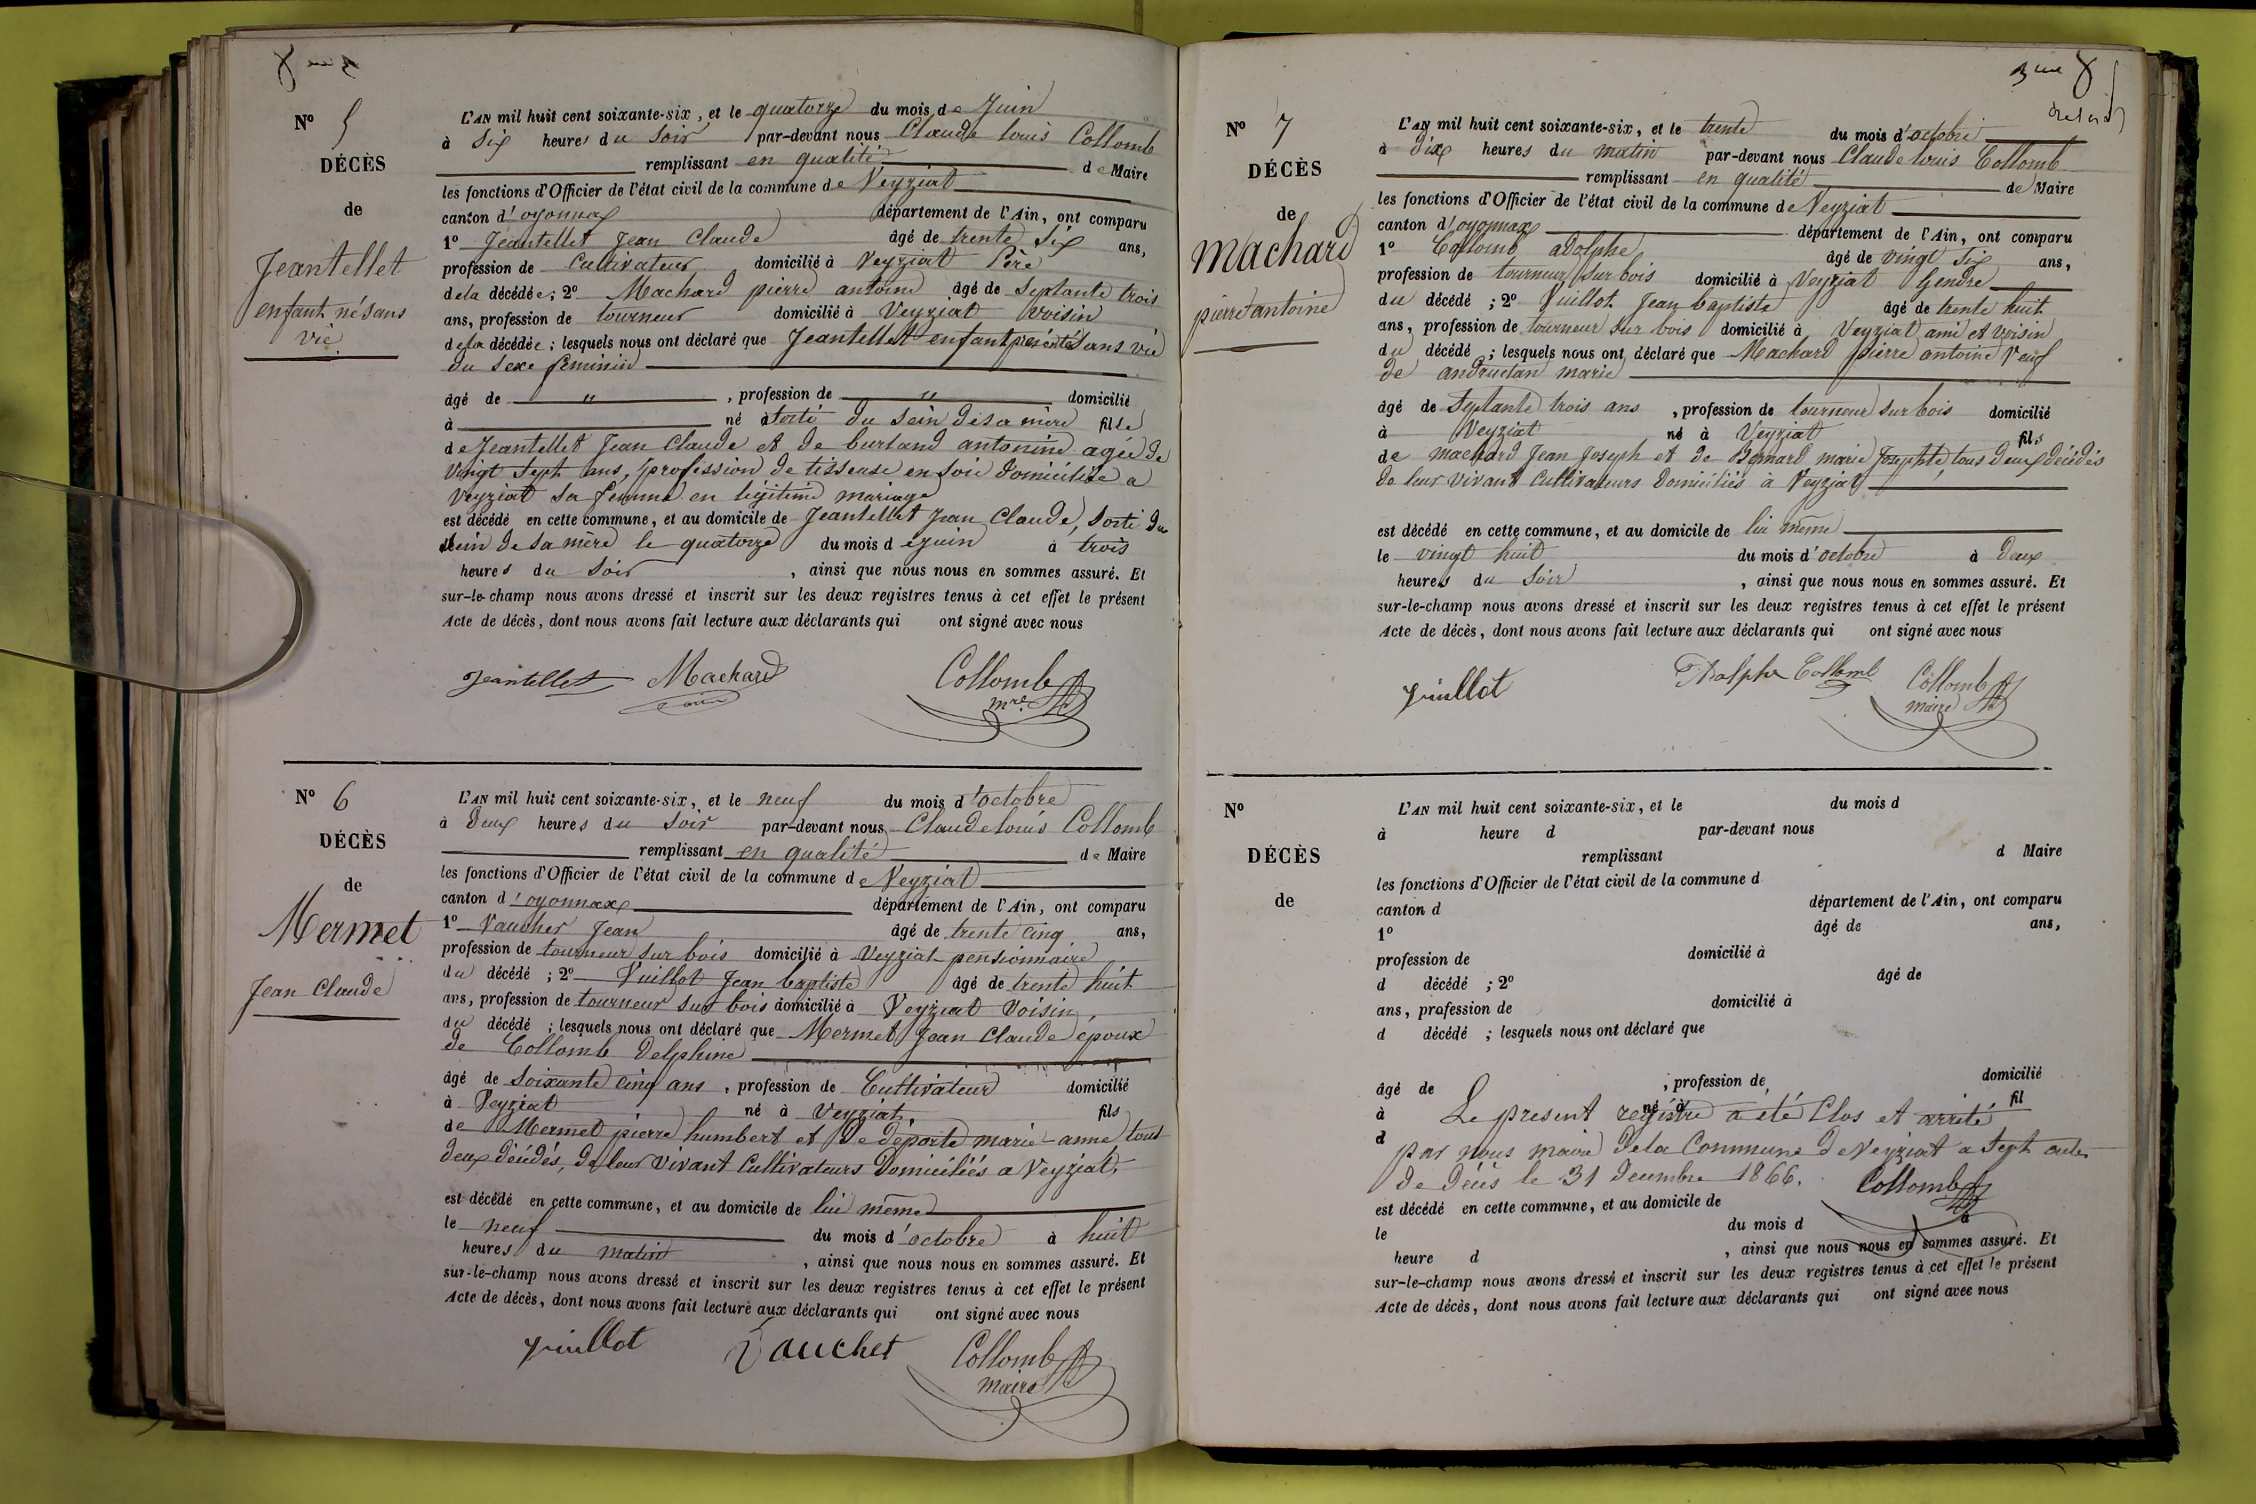 N° 5
DÉCÈS
de
Jeantellet
enfant né sans
vie
L'AN mil huit cent soixante-six, et le quatorze du mois de Juin
à Six heures du Soir par-devant nous Claude louis Collomb
remplissant en qualité de Maire
les fonctions d'Officier de l'état civil de la commune de Veyziat
canton d'oyonnax département de l'Ain, ont comparu
1° Jeantellet Jean Claude âgé de trente Six ans,
profession de Cultivateur domicilié à Veyziat Père
dela décédée; 2° Machard pierre antoine âgé de Septante trois
ans, profession de tourneur domicilié à Veyziat voisin
dela décédée; lesquels nous ont déclaré que Jeantellet enfant présenté Sans vie
du Sexe féminin
âgé de " , profession de " domicilié
à né à Sorti du Sein de sa mère fille
de Jeantellet Jean Claude et de burland antonine agée de
vingt Sept ans, profession de tisseuse en Soie Domiciliée a
Veyziat Sa femme en légitime mariage
est décédé en cette commune, et au domicile de Jeantellet Jean Claude, Sorti du
Sein de sa mère le quatorze du mois de juin à trois
heures du Soir , ainsi que nous nous en sommes assuré. Et
sur-le-champ nous avons dressé et inscrit sur les deux registres tenus à cet effet le présent
Acte de décès, dont nous avons fait lecture aux déclarants qui ont signé avec nous
Jeantellet Machard Collomb
mre
N° 6
DÉCÈS
de
Mermet
Jean Claude
L'AN mil huit cent soixante-six, et le neuf du mois d'octobre
à Deux heures du Soir par-devant nous Claude louis Collomb
remplissant en qualité de Maire
les fonctions d'Officier de l'état civil de la commune de Veyziat
canton d'oyonnax département de l'Ain, ont comparu
1° Vaucher Jean âgé de trente cinq ans,
profession de tourneur sur bois domicilié à Veyziat pensionnaire
du décédé; 2° Vuillot Jean baptiste âgé de trente huit
ans, profession de tourneur sur bois domicilié à Veyziat Voisin
du décédé; lesquels nous ont déclaré que Mermet Jean Claude epoux
de Collomb Delphine
âgé de Soixante cinq ans, profession de Cultivateur domicilié
à Veyziat né à Veyziat fils
de Mermet pierre humbert et de déporte marie-anne tout
deux décédés, de leur vivant Cultivateurs Domiciliés a Veyziat
est décédé en cette commune, et au domicile de lui même
le neuf du mois d'octobre à huit
heures du matin , ainsi que nous nous en sommes assuré. Et
sur-le-champ nous avons dressé et inscrit sur les deux registres tenus à cet effet le présent
Acte de décès, dont nous avons fait lecture aux déclarants qui ont signé avec nous
Vuillot Vaucher Collomb
maire
3me 8
N° 7
DÉCÈS
de
Machard
pierre antoine
L'AN mil huit cent soixante-six, et le trente du mois d'octobre
à Dix heures du matin par-devant nous Claude louis Collomb
remplissant en qualité de Maire
les fonctions d'Officier de l'état civil de la commune de Veyziat
canton d'oyonnax département de l'Ain, ont comparu
1° Collomb adolphe âgé de vingt Six ans,
profession de tourneur sur bois domicilié à Veyziat Gendre
du décédé; 2° Vuillot Jean baptiste âgé de trente huit
ans, profession de tourneur sur bois domicilié à Veyziat ami et voisin
du décédé; lesquels nous ont déclaré que Machard pierre antoine Veuf
de andructan marie
âgé de Septante trois ans , profession de tourneur sur bois domicilié
à Veyziat né à Veyziat fils
de machard Jean Joseph et de Bernard marie Josephte, tous deux décédés
de leur vivant Cultivateurs Domiciliés à Veyziat
est décédé en cette commune, et au domicile de lui même
le vingt huit du mois d'octobre à Deux
heures du Soir , ainsi que nous nous en sommes assuré. Et
sur-le-champ nous avons dressé et inscrit sur les deux registres tenus à cet effet le présent
Acte de décès, dont nous avons fait lecture aux déclarants qui ont signé avec nous
Vuillot Adolphe Collomb Collomb
maire
N°
DÉCÈS
de
L'AN mil huit cent soixante-six, et le du mois d
à heure d par-devant nous
remplissant d Maire
les fonctions d'Officier de l'état civil de la commune d
canton d département de l'Ain, ont comparu
1° âgé de ans,
profession de domicilié à
d décédé; 2° âgé de
ans, profession de domicilié à
d décédé; lesquels nous ont déclaré que
âgé de , profession de domicilié
à né à fil
Le present registre a été Clos et arrêté
d
par nous maire dela Commune de Veyziat a Sept actes
de Décès le 31 Decembre 1866. Collomb
est décédé en cette commune, et au domicile de
le du mois d à
heure d , ainsi que nous nous en sommes assuré. Et
sur-le-champ nous avons dressé et inscrit sur les deux registres tenus à cet effet le présent
Acte de décès, dont nous avons fait lecture aux déclarants qui ont signé avec nous